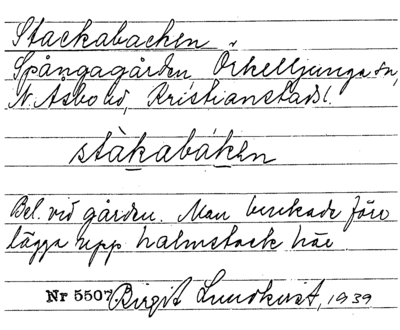 Stackabacken
Spångagården, Örkelljunga sn,
N. Åsbo hd, Kristianstads l.
stàkabák̲en
Bel. vid gården. Man brukade förr
lägga upp halmstack här.
Nr 5507 Birgit Lundkvist, 1939